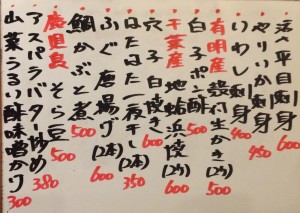 活〆平目刺身 600
やりいか刺身 450
いわし刺身 400
有明産 殻付生かき(2ヶ) 500
白子ポン酢 600
千葉産 地蛤浜焼(2ヶ) 600
穴子白焼き 600
はたはた一夜干し(2本) 350
ふぐ唐揚げ(2本) 600
鯛かぶと煮 500
鹿児島 そら豆 500
アスパラバター炒め 380
山菜うるい酢味噌かけ 300